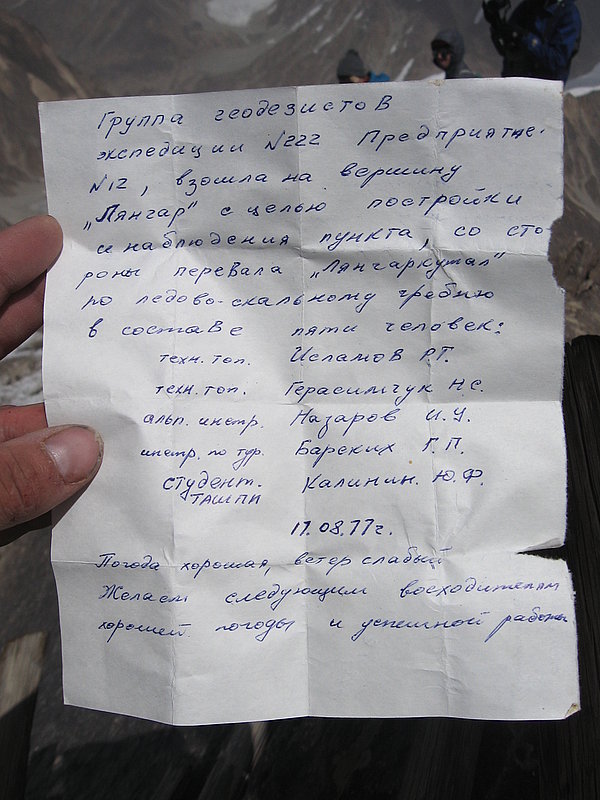 Группа геодезистов
экспедиции №222 Предприятие
№12, взошла на вершину
„Лянгар" с целью постройки
и наблюдения пункта, со сто
роны перевала „Лянгаркутал"
по ледово-скальному гребню
в составе пяти человек:
техн. топ. Исламов Р.Г.
техн. топ. Герасимчук Н.С.
альп. инстр. Назаров И.У.
инстр. по тур. Барских Г.П.
студент. Калинин. Ю.Ф.
ТАШПИ
17.08.77г.
Погода хорошая, ветер слабый
Желаем следующим восходителям
хорошей погоды и успешной работы